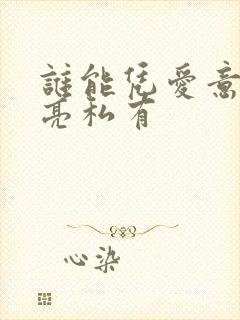 誰能凭愛意
亮私有
心染